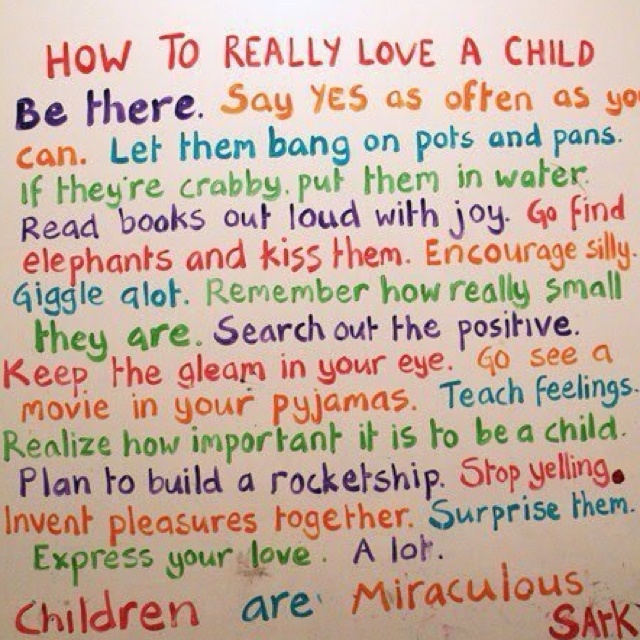 HOW TO REALLY LOVE A CHILD
Be there. Say YES as often as yo
can. Let them bang on pots and pans.
If they're crabby, put them in water.
Read books out loud with joy. Go find
elephants and kiss them. Encourage silly.
Giggle alot. Remember how really small
they are. Search out the positive.
Keep the gleam in your eye. Go see a
movie in your pyjamas. Teach feelings.
Realize how important it is to be a child.
Plan to build a rocketship. Stop yelling.
Invent pleasures together. Surprise them.
Express your love. A lot.
Children are Miraculous
SARK